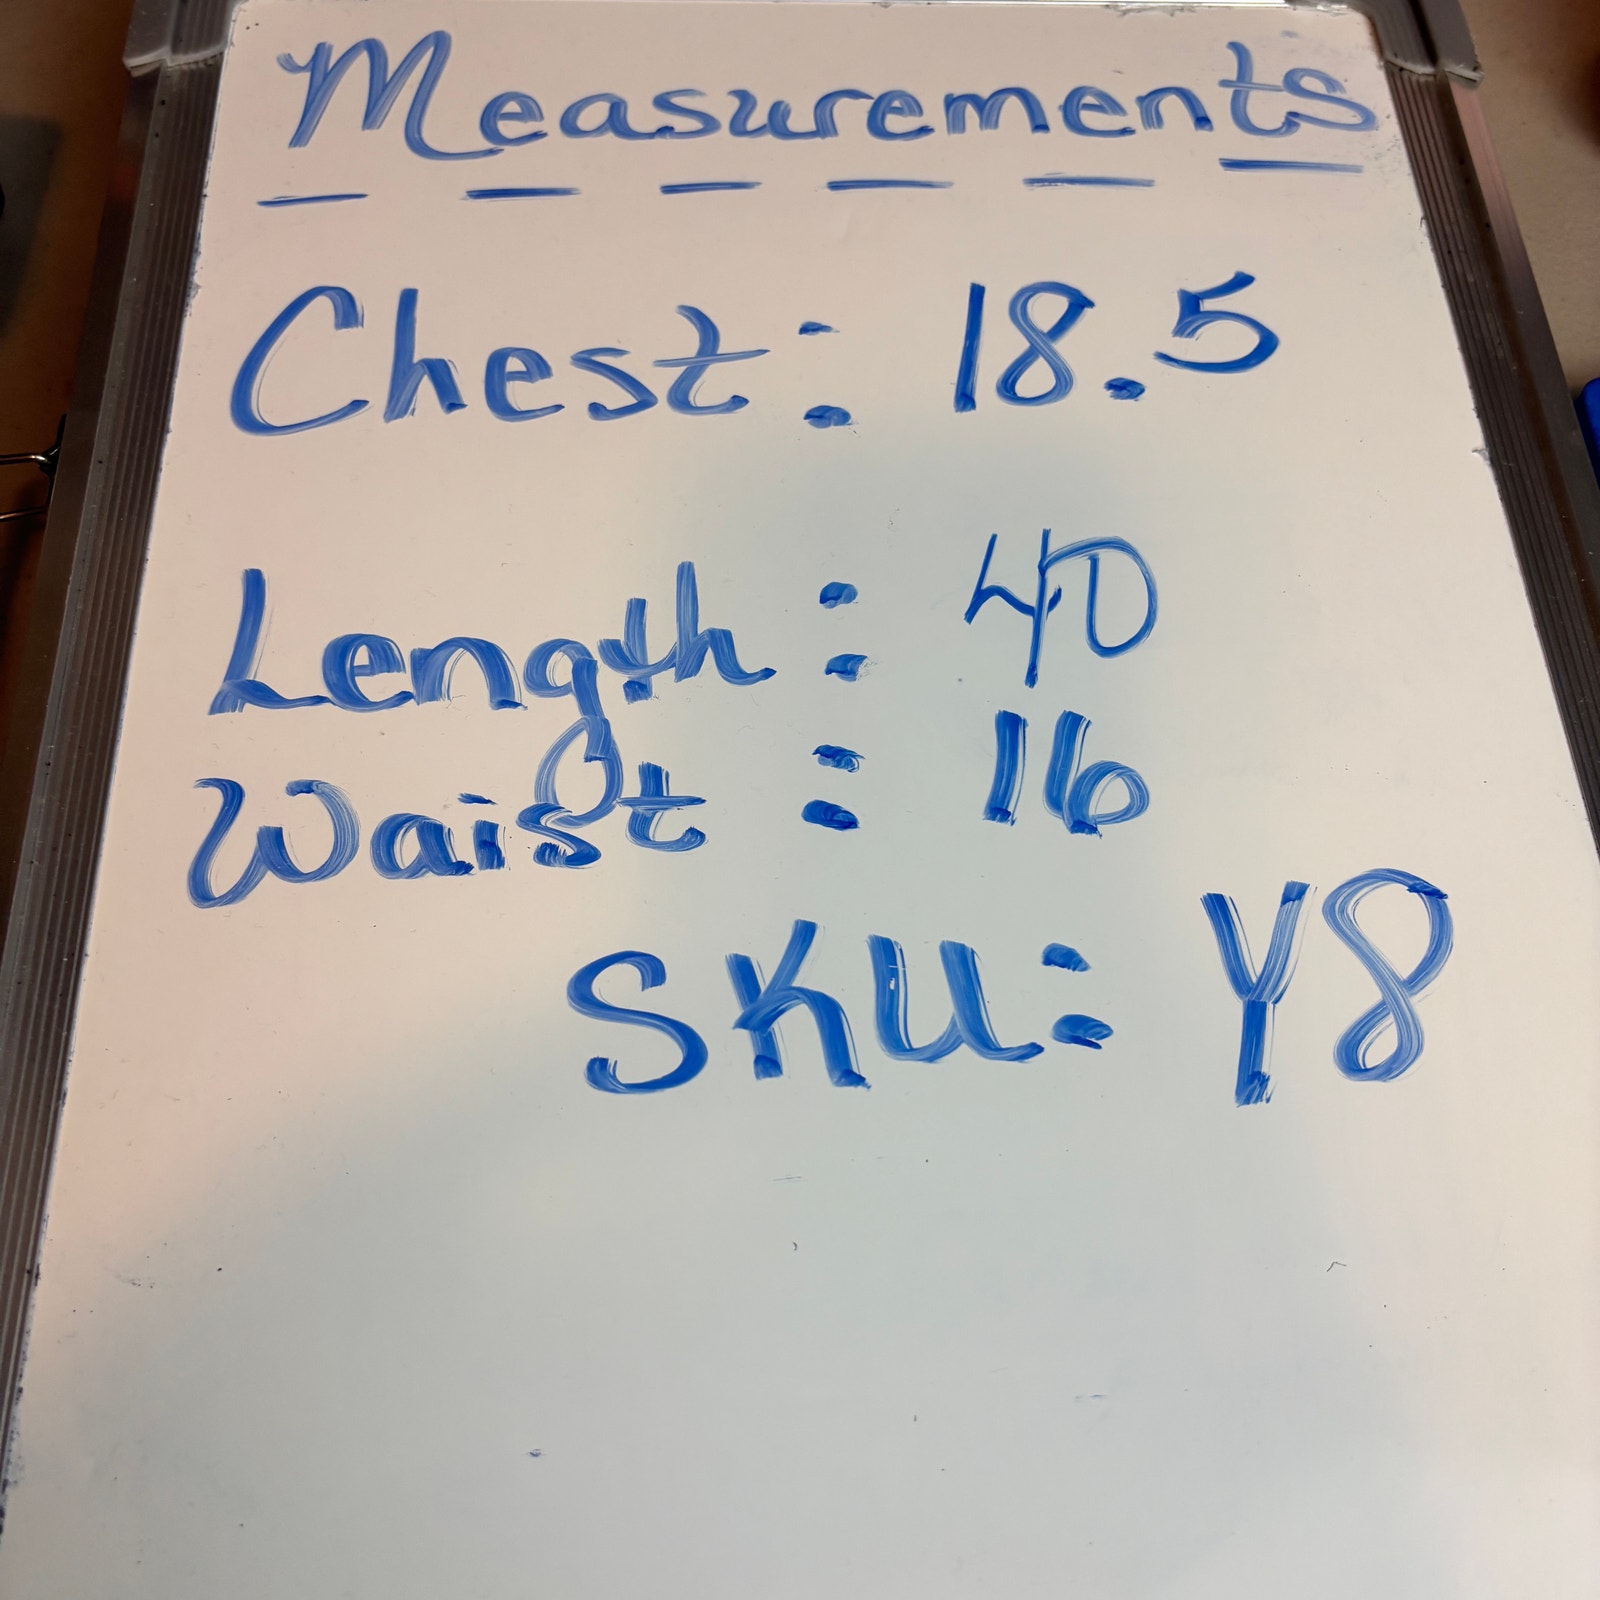 Measurements
Chest: 18.5
Length: 40
Waist: 16
SKU: Y8